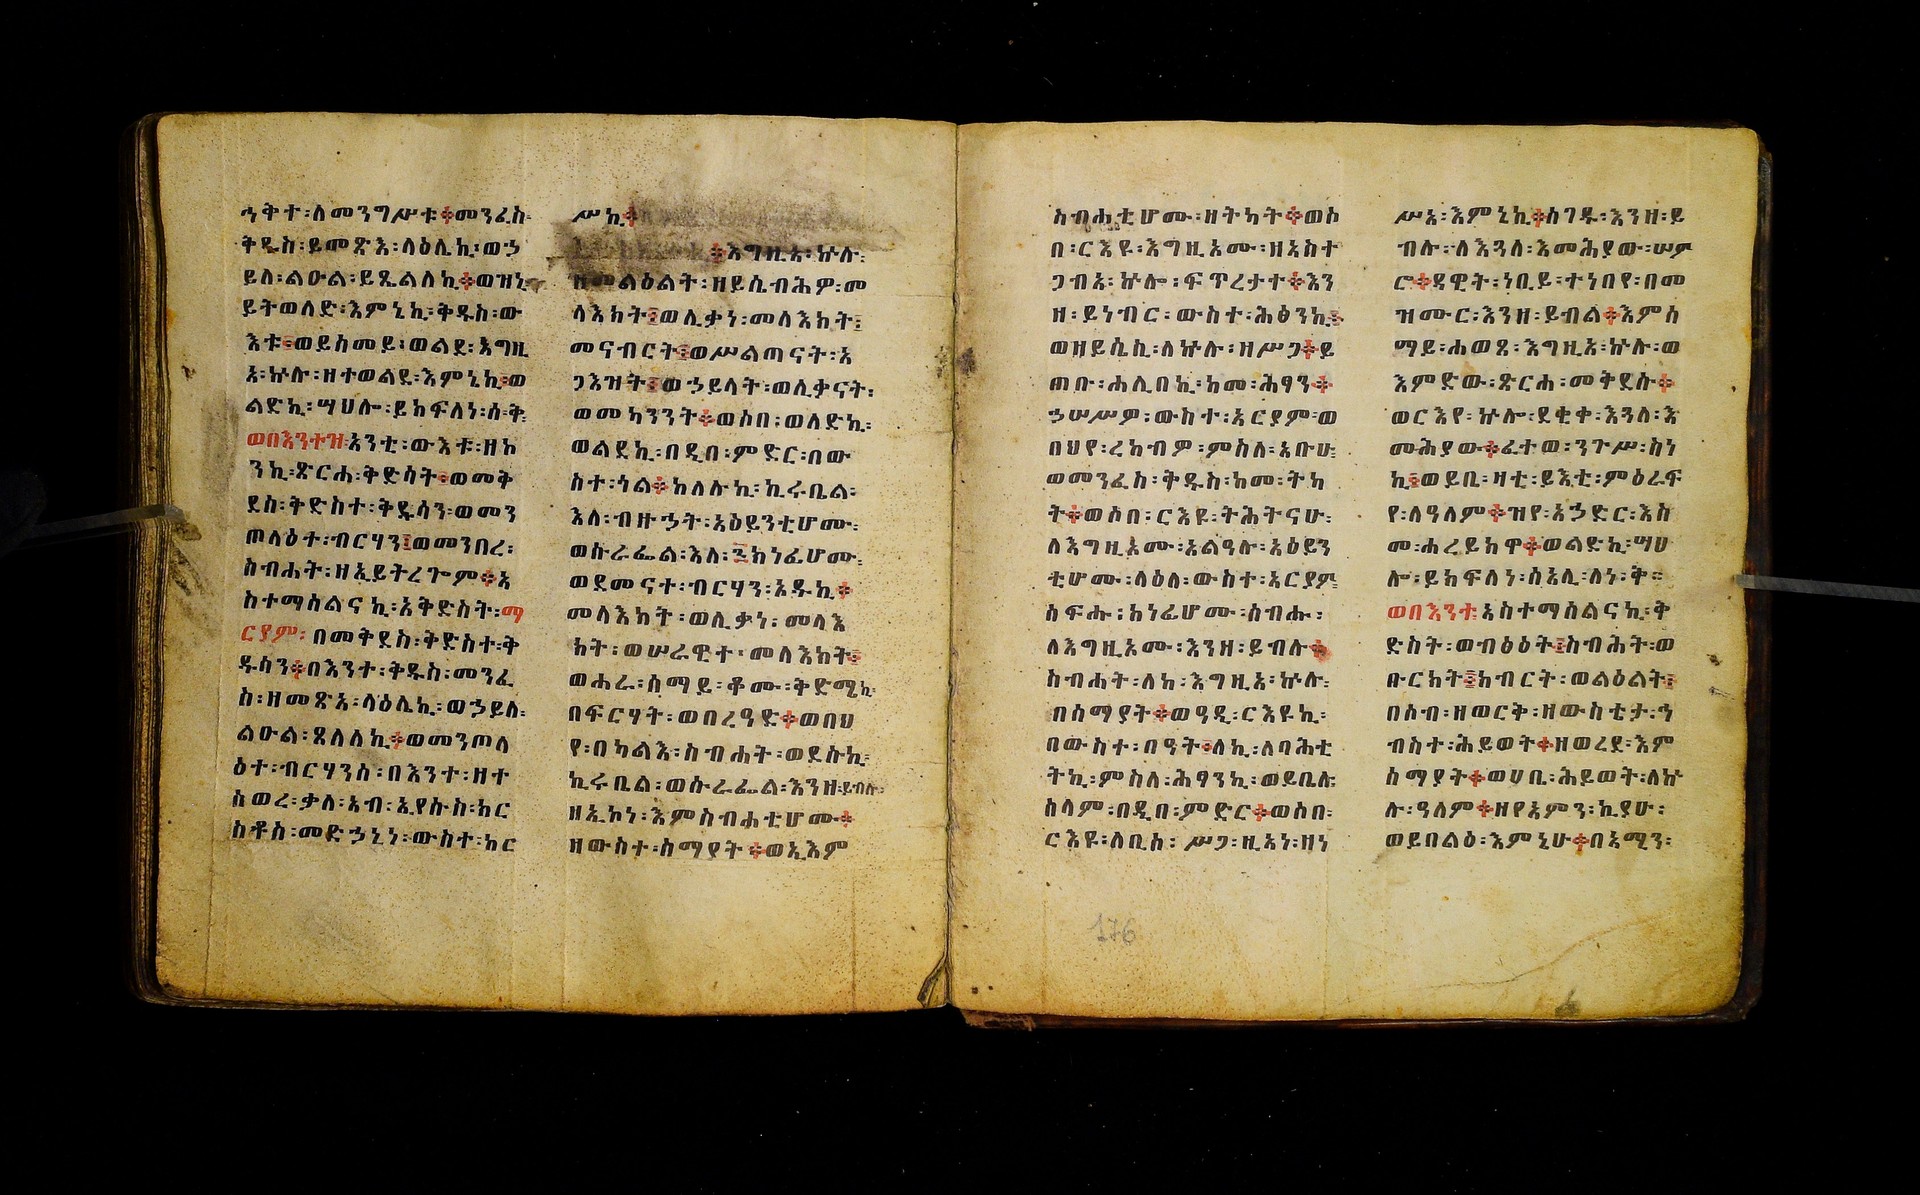 ኅቅተ፡ለመንግሥቱ።መንፈስ፡
ቅዱስ፡ይመጽእ፡ላዕሌኪ፡ወኃ
ይለ፡ልዑል፡ይጼልለኪ።ወዝኒ
ይትወለድ፡እምኔኪ፡ቅዱስ፡ው
እቱ፡ወይሰመይ፡ወልደ፡እግዚ
አ፡ኵሉ፡ዘተወልደ፡እምኔኪ፡ወ
ልድኪ፡ሣህሉ፡ይከፍለነ፡ሰ፡ቅ፡
ወበእንተዝ፡አንቲ፡ውእቱ፡ዘከ
ንኪ፡ጽርሐ፡ቅድስት፡ወመቅ
ደስ፡ቅድስተ፡ቅዱሳን፡ወመን
ጦላዕተ፡ብርሃን፤ወመንበረ፡
ስብሐት፡ዘኢይትረጐም።አ
ስተማሰልናኪ፡አቅድስት፡ማ
ርያም፡በመቅደስ፡ቅድስተ፡ቅ
ዱሳን።በእንተ፡ቅዱስ፡መንፈ
ስ፡ዘመጽአ፡ላዕሌኪ፡ወኃይለ፡
ልዑል፡ጸለለኪ።ወመንጦላ
ዕተ፡ብርሃንሰ፡በእንተ፡ዘተ
ሰወረ፡ቃለ፡አብ፡ኢየሱስ፡ክር
ስቶስ፡መድኃኒነ፡ውስተ፡ከር
ሥኪ።
።እግዚአ፡ኵሉ፡
ዘመልዕልት፡ዘይሴብሕዎ፡መ
ላእክት፤ወሊቃነ፡መላእክት፤
መናብርት፤ወሥልጣናት፡አ
ጋእዝት፤ወኃይላት፡ወሊቃናት፡
ወመካንንት።ወሶበ፡ወለድኪ፡
ወልደኪ፡በዲበ፡ምድር፡በው
ስተ፡ጎል።ከለሉኪ፡ኪሩቤል፡
እለ፡ብዙኃት፡አዕይንቲሆሙ፡
ወሱራፌል፡እለ፡፮ክነፊሆሙ
ወደመናተ፡ብርሃን፡አዱኪ።
መላእክት፡ወሊቃነ፡መላእ
ክት፡ወሠራዊተ፡መላእክት፡
ወሐራ፡ሰማይ፡ቆሙ፡ቅድሜኪ፡
በፍርሃት፡ወበረዓድ።ወበህ
የ፡በካልእ፡ስብሐት፡ወደሱኪ፡
ኪሩቤል፡ወሱራፌል፡እንዘ፡ይብሉ፡
ዘኢኮነ፡እምስብሐቲሆሙ።
ዘውስተ፡ሰማያት።ወኢእም
ስብሐቲሆሙ፡ዘትካት።ወሶ
በ፡ርእዩ፡እግዚአሙ፡ዘአስተ
ጋብአ፡ኵሎ፡ፍጥረታተ።እን
ዘ፡ይነብር፡ውስተ፡ሕፅንኪ፡
ወዘይሴሲ፡ለኵሉ፡ዘሥጋ።ይ
ጠቡ፡ሐሊበኪ፡ከመ፡ሕፃን።
ኃሠሥዎ፡ውስተ፡አርያም፡ወ
በህየ፡ረከብዎ፡ምስለ፡አቡሁ፡
ወመንፈስ፡ቅዱስ፡ከመ፡ትካ
ት።ወሶበ፡ርእዩ፡ትሕትናሁ፡
ለእግዚአሙ፡አልዓሉ፡አዕይን
ቲሆሙ፡ላዕለ፡ውስተ፡አርያም፡
ሰፍሑ፡ክነፊሆሙ፡ሰብሑ፡
ለእግዚአሙ፡እንዘ፡ይብሉ።
ስብሐት፡ለከ፡እግዚአ፡ኵሉ፡
በሰማያት።ወዓዲ፡ርእዩኪ፡
በውስተ፡በዓት፡ለኪ፡ለባሕቲ
ትኪ፡ምስለ፡ሕፃንኪ፡ወይቤሉ፡
ሰላም፡በዲበ፡ምድር።ወሶበ፡
ርእዩ፡ለቢሰ፡ሥጋ፡ዚአነ፡ዘነ
ሥአ፡እምኔኪ።ሰገዱ፡እንዘ፡ይ
ብሉ፡ለእጓለ፡እመሕያው፡ሠም
ሮ።ዳዊት፡ነቢይ፡ተነበየ፡በመ
ዝሙር፡እንዘ፡ይብል።እምሰ
ማይ፡ሐወጸ፡እግዚአ፡ኵሉ፡ወ
እምድው፡ጽርሐ፡መቅደሱ።
ወርእየ፡ኵሎ፡ደቂቀ፡እጓለ፡እ
መሕያው።ፈተወ፡ንጉሥ፡ስነ
ኪ፤ወይቤ፡ዛቲ፡ይእቲ፡ምዕራፍ
የ፡ለዓለም።ዝየ፡አኃድር፡እስ
መ፡ሐረይክዋ።ወልድኪ፡ሣህ
ሎ፡ይከፍለነ፡ሰአሊ፡ለነ፡ቅ።
ወበእንተ፡አስተማሰልናኪ፡ቅ
ድስት፡ወብፅዕት፤ስብሕት፡ወ
ቡርክት፤ክብርት፡ወልዕልት፤
በሶብ፡ዘወርቅ፡ዘውስቴታ፡ኅ
ብስተ፡ሕይወት።ዘወረደ፡እም
ሰማያት።ወሀቤ፡ሕይወት፡ለኵ
ሉ፡ዓለም።ዘየአምን፡ኪያሁ፡
ወይበልዕ፡እምኔሁ።በአሚን፡
176